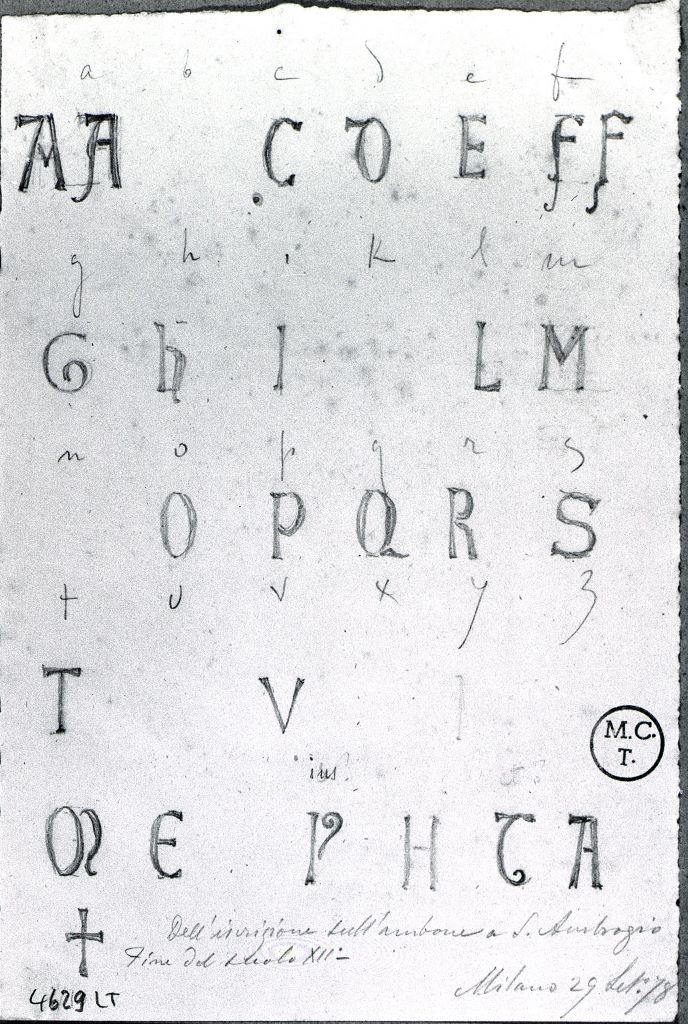 a b c d e f
A A C D E F F
g h i K l m
G h I L M
n o p q r s
O P Q R S
t u v x y z
T V
M.C.
T.
ius?
M E H T A
Dell'iscrizione sull'ambone a S. Ambrogio
Fine del secolo XII°-
Milano 29 Set. 78
4629 LT